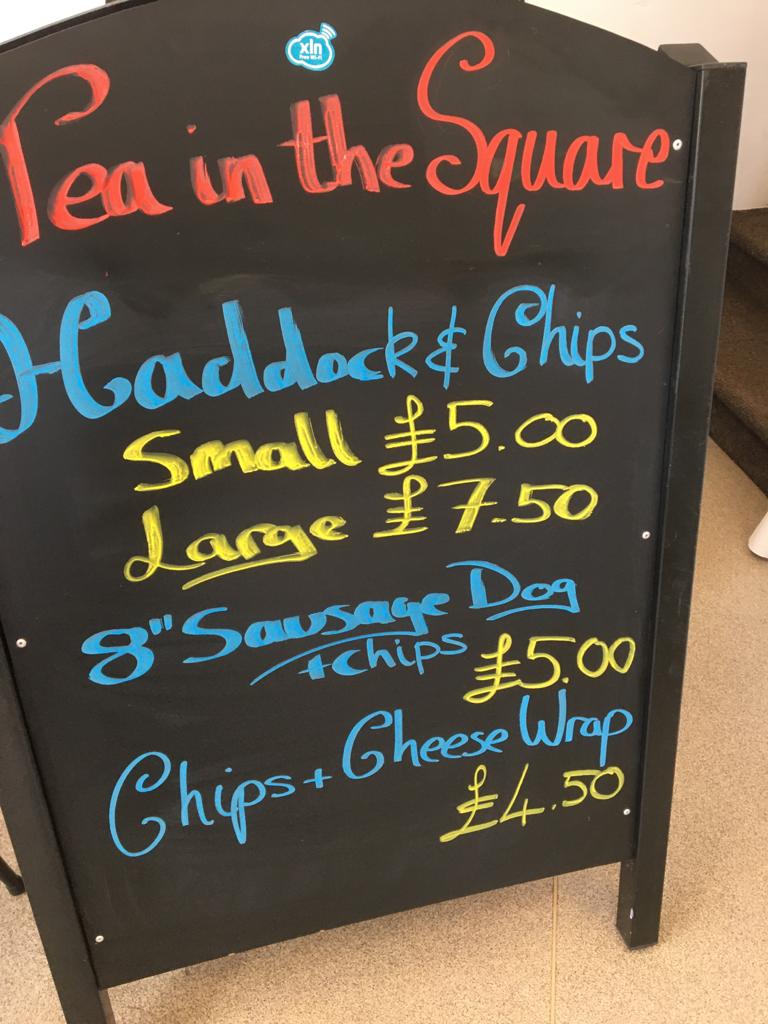 xln
Free Wi-Fi
Pea in the Square
Haddock & Chips
Small £5.00
Large £7.50
8" Sausage Dog
+chips £5.00
Chips + Cheese Wrap
£4.50